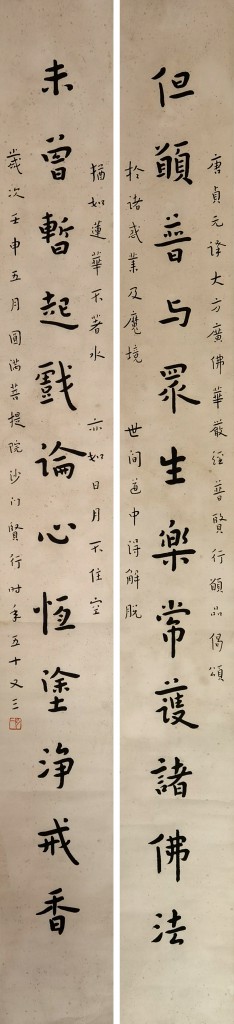 唐貞元译大方廣佛華嚴經普賢行願品偈頌
但願普与眾生樂常護諸佛法
於諸惑業及魔境 世间道中得解脫
猶如蓮華不著水 亦如日月不住空
未曾暫起戲論心恆塗淨戒香
歲次壬申五月圓滿菩提院沙门賢行時年五十又三